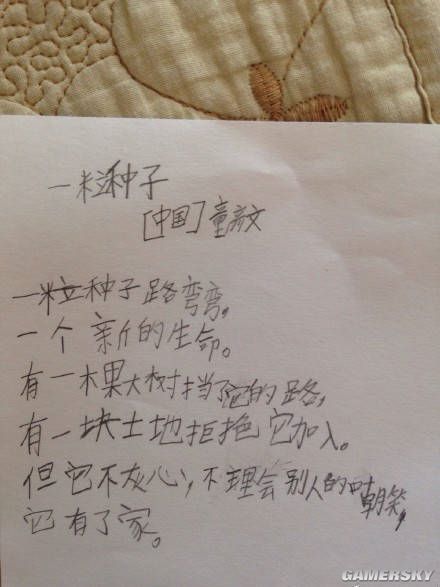 一粒种子
[中国]童
一粒种子路弯弯,
一个新的生命。
有一棵大树挡了它的路,
有一块土地拒绝它加入。
但它不灰心,不理会别人的嘲笑,
它有了家。
GAMERSKY